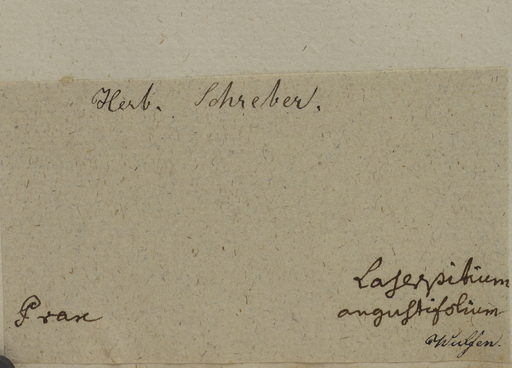 Herb. Schreber.
Laserpitium
angustifolium
Prax
Wulfen.